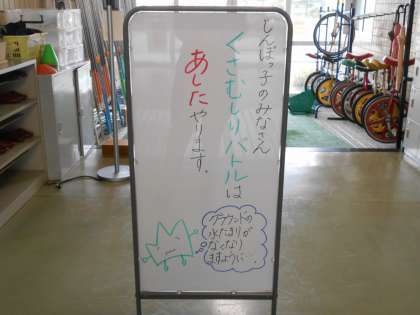 しんぼっ子のみなさん
くさむしりバトルは
あした やります.
グラウンドの
水たまりが
なくなり
ますように…